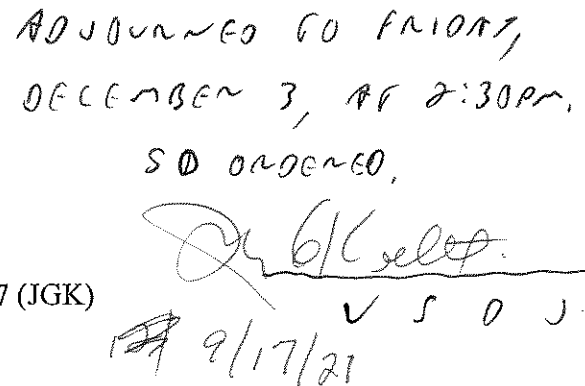 ADJOURNED TO FRIDAY,
DECEMBER 3, AT 2:30PM.
SO ORDERED.
7 (JGK)
U S D J.
9/17/21